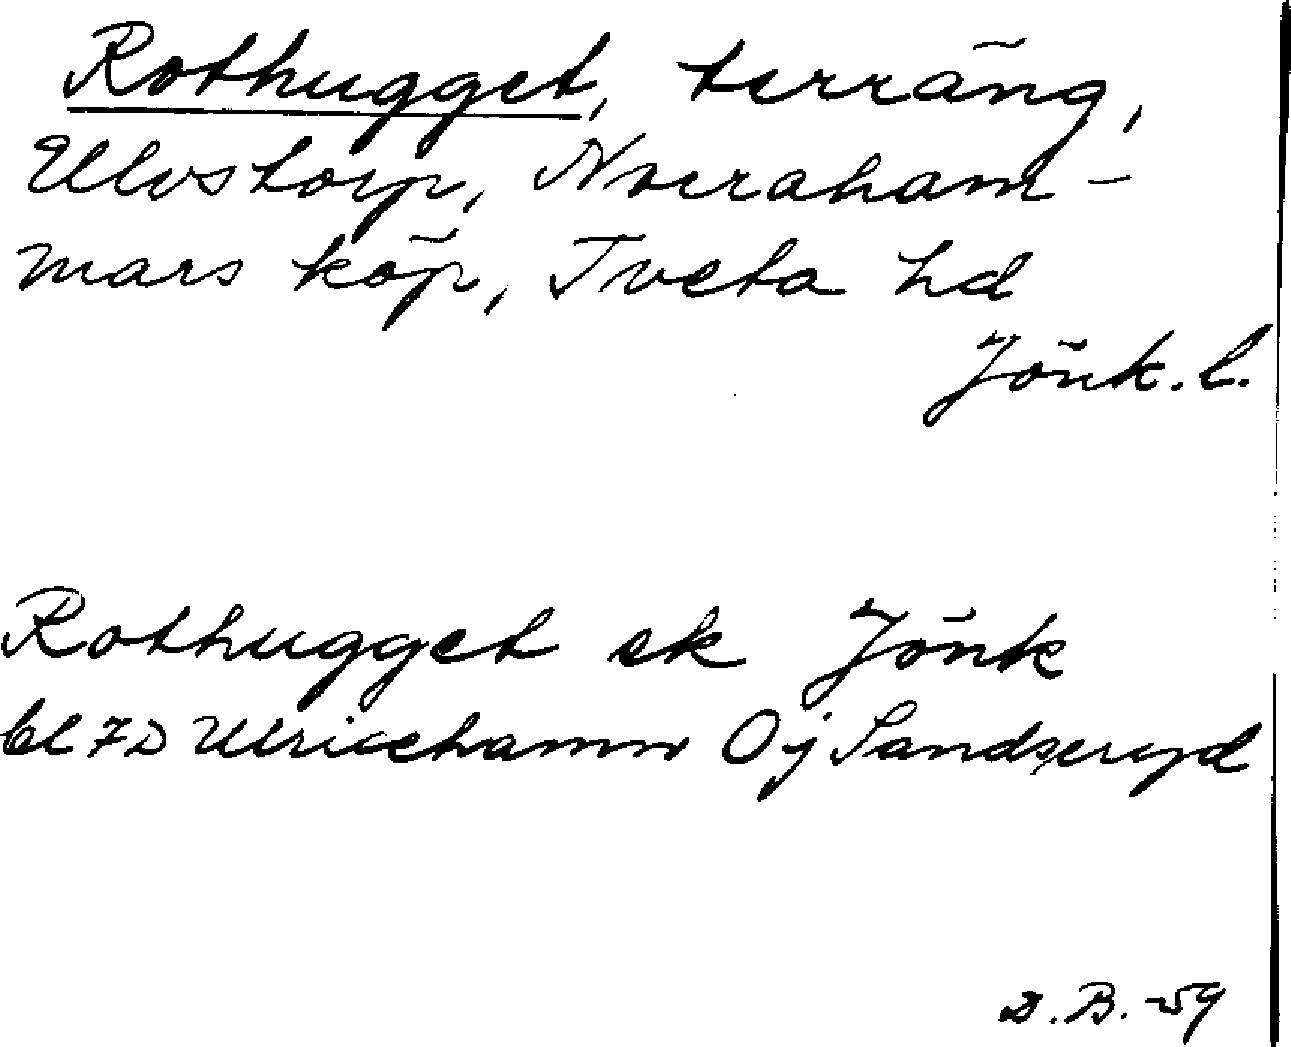 Rothugget, terräng,
Ulvstorp, Norraham-
mars köp, Tveta hd
Jönk. l.
Rothugget ek Jönk
bl 7D Ulricehamn Öj Sandseryd
D. B. -59